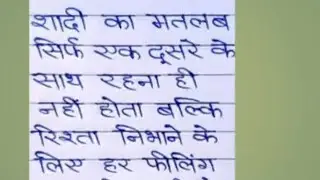 शादी का मतलब
सिर्फ एक दूसरे के
साथ रहना ही
नहीं होता बल्कि
रिश्ता निभाने के
लिए हर फीलिंग